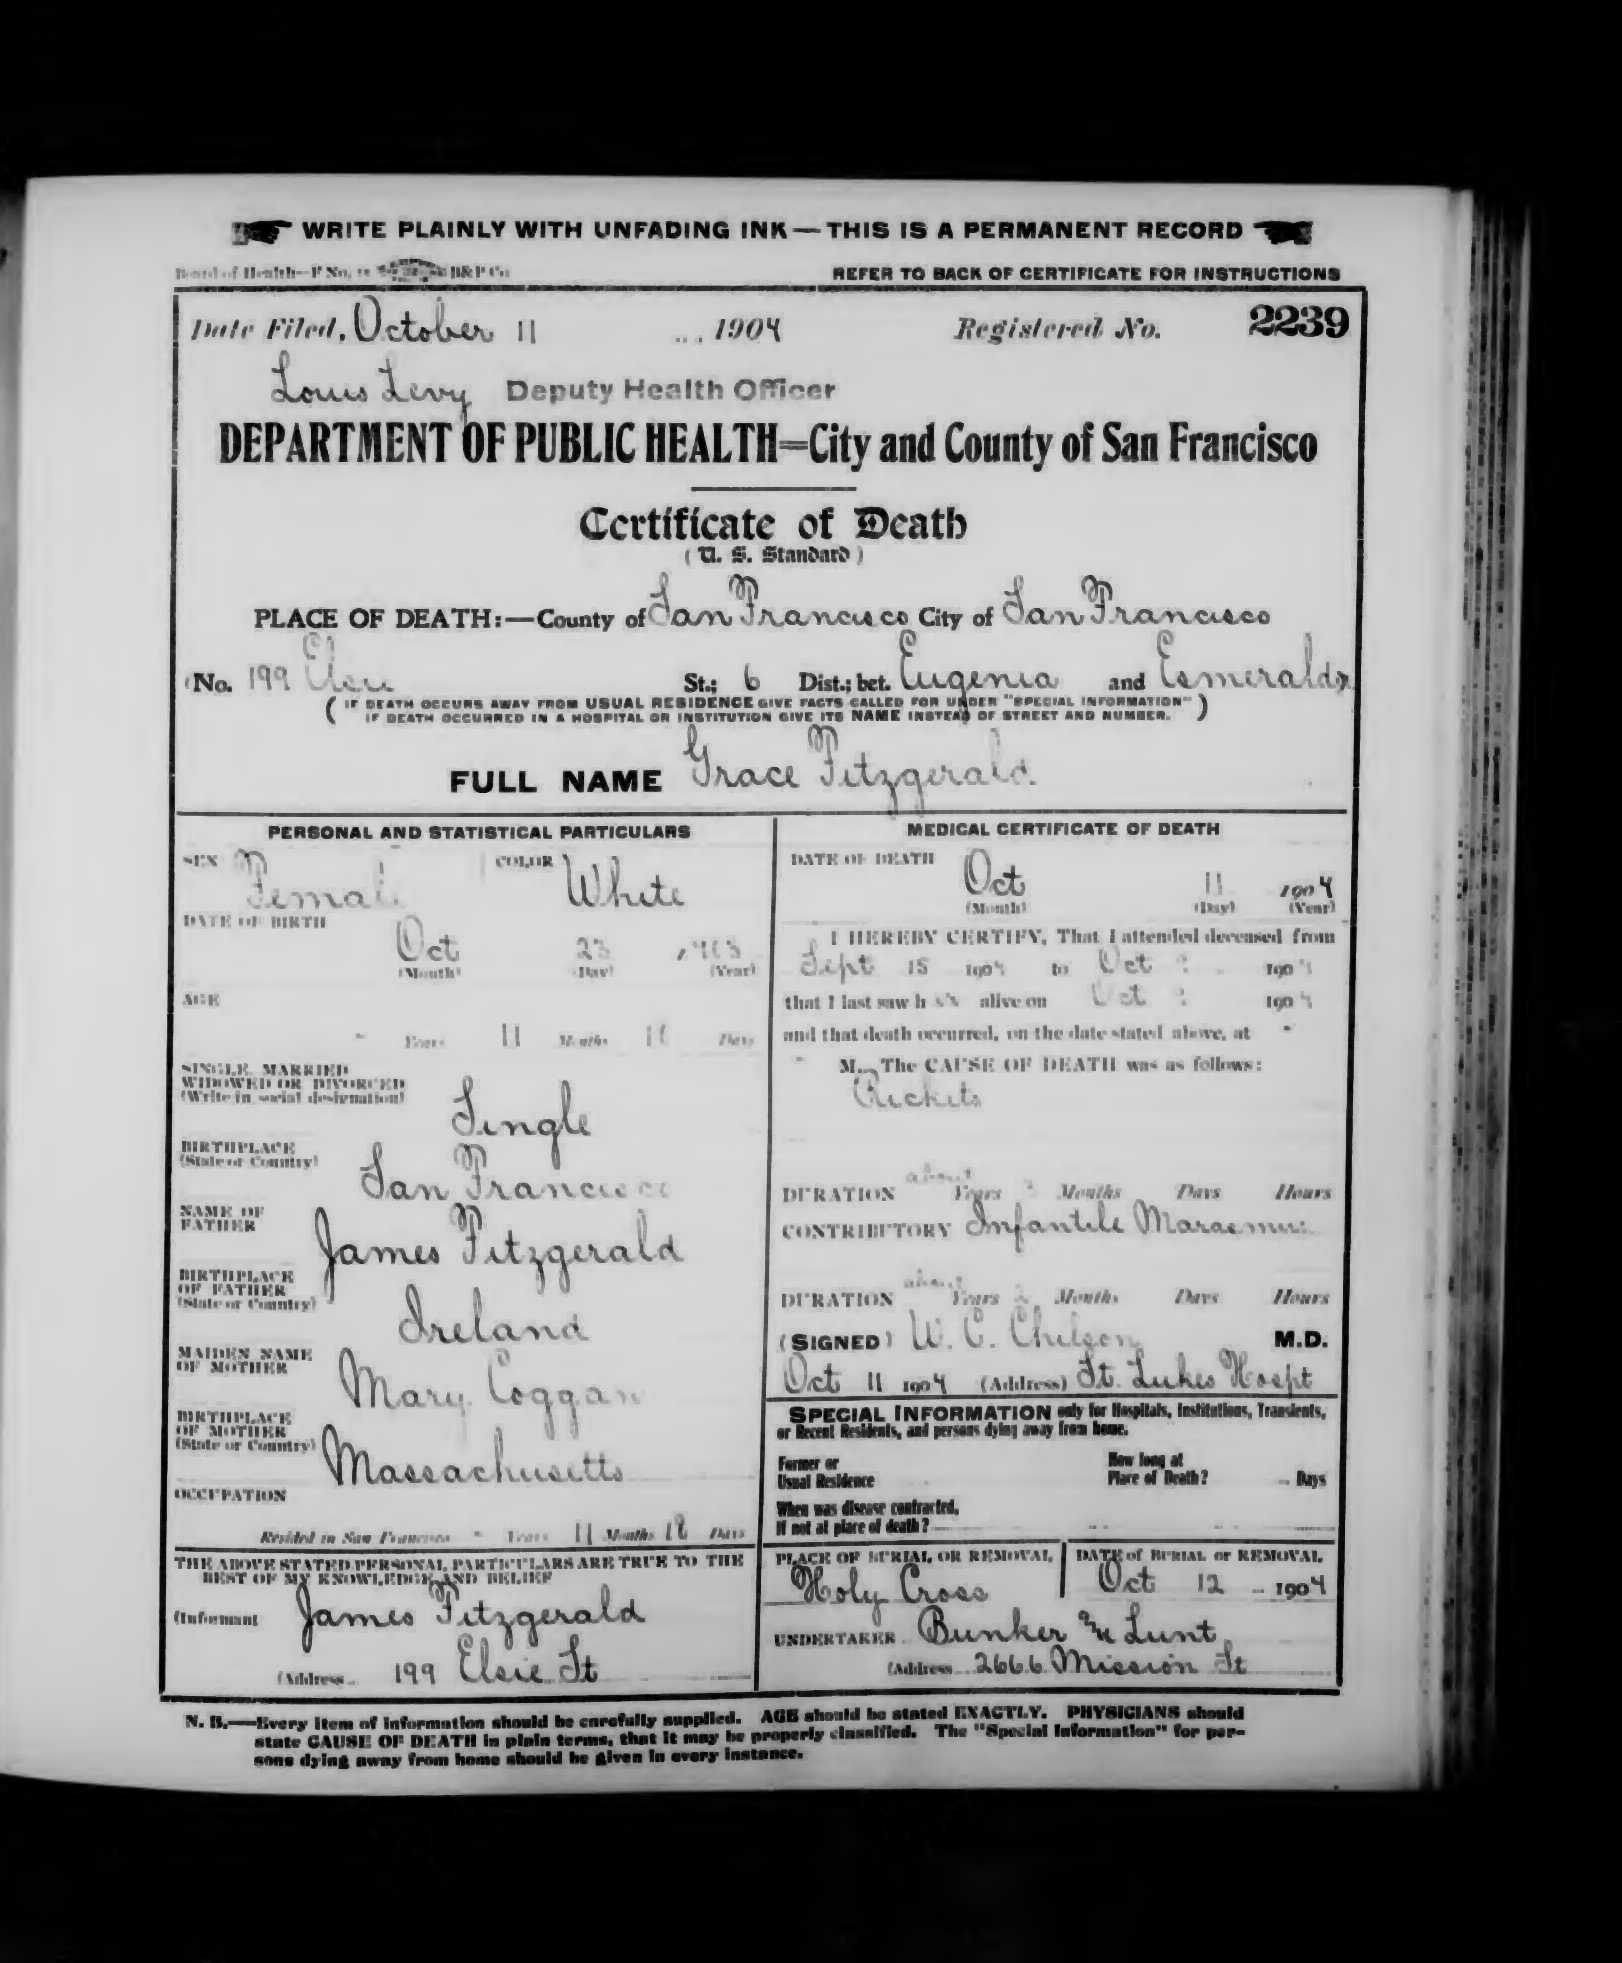 WRITE PLAINLY WITH UNFADING INK—THIS IS A PERMANENT RECORD
Board of Health—F No. B&P Co
REFER TO BACK OF CERTIFICATE FOR INSTRUCTIONS
Date Filed, October 11 1904 Registered No. 2239
Louis Levy Deputy Health Officer
DEPARTMENT OF PUBLIC HEALTH=City and County of San Francisco
Certificate of Death
(U. S. Standard)
PLACE OF DEATH:—County of San Francisco City of San Francisco
(No. 199 Elsie St.; 6 Dist.; bet. Eugenia and Esmeralda
( IF DEATH OCCURS AWAY FROM USUAL RESIDENCE GIVE FACTS CALLED FOR UNDER "SPECIAL INFORMATION" )
IF DEATH OCCURRED IN A HOSPITAL OR INSTITUTION GIVE ITS NAME INSTEAD OF STREET AND NUMBER.
FULL NAME Grace Fitzgerald
PERSONAL AND STATISTICAL PARTICULARS
SEX Female COLOR White
DATE OF BIRTH
Oct 23 1903
(Month) (Day) (Year)
AGE
- Years 11 Months 18 Days
SINGLE, MARRIED
WIDOWED OR DIVORCED
(Write in social designation)
Single
BIRTHPLACE
(State or Country)
San Francisco
NAME OF
FATHER
James Fitzgerald
BIRTHPLACE
OF FATHER
(State or Country)
Ireland
MAIDEN NAME
OF MOTHER
Mary Coggan
BIRTHPLACE
OF MOTHER
(State or Country)
Massachusetts
OCCUPATION
Resided in San Francisco - Years 11 Months 18 Days
THE ABOVE STATED PERSONAL PARTICULARS ARE TRUE TO THE
BEST OF MY KNOWLEDGE AND BELIEF
(Informant James Fitzgerald
(Address 199 Elsie St
MEDICAL CERTIFICATE OF DEATH
DATE OF DEATH
Oct 11 1904
(Month) (Day) (Year)
I HEREBY CERTIFY, That I attended deceased from
Sept 15 1904 to Oct 1904
that I last saw h alive on Oct 1904
and that death occurred, on the date stated above, at -
- M. The CAUSE OF DEATH was as follows:
Rickets
DURATION about Years Months Days Hours
CONTRIBUTORY Infantile Marasmus
DURATION about Years 2 Months Days Hours
(SIGNED) W. C. Chilson M.D.
Oct 11 1904 (Address) St. Lukes Hospt
SPECIAL INFORMATION only for Hospitals, Institutions, Transients,
or Recent Residents, and persons dying away from home.
Former or
Usual Residence
How long at
Place of Death? Days
When was disease contracted,
If not at place of death?
PLACE OF BURIAL OR REMOVAL
Holy Cross
DATE of BURIAL or REMOVAL
Oct 12 1904
UNDERTAKER Bunker & Lunt
(Address 2666 Mission St
N. B.—Every item of information should be carefully supplied. AGE should be stated EXACTLY. PHYSICIANS should
state CAUSE OF DEATH in plain terms, that it may be properly classified. The "Special Information" for per-
sons dying away from home should be given in every instance.